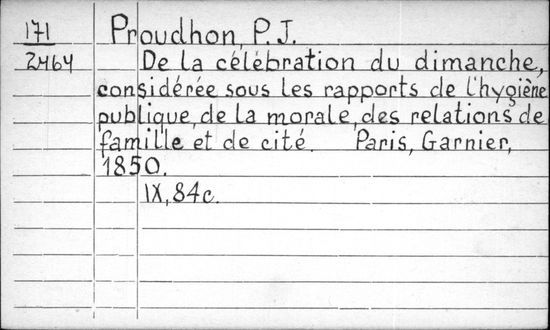 171
2464
Proudhon, P.J.
De la célébration du dimanche,
considérée sous les rapports de l'hygiène
publique, de la morale, des relations de
famille et de cité. Paris, Garnier,
1850.
IX, 84c.